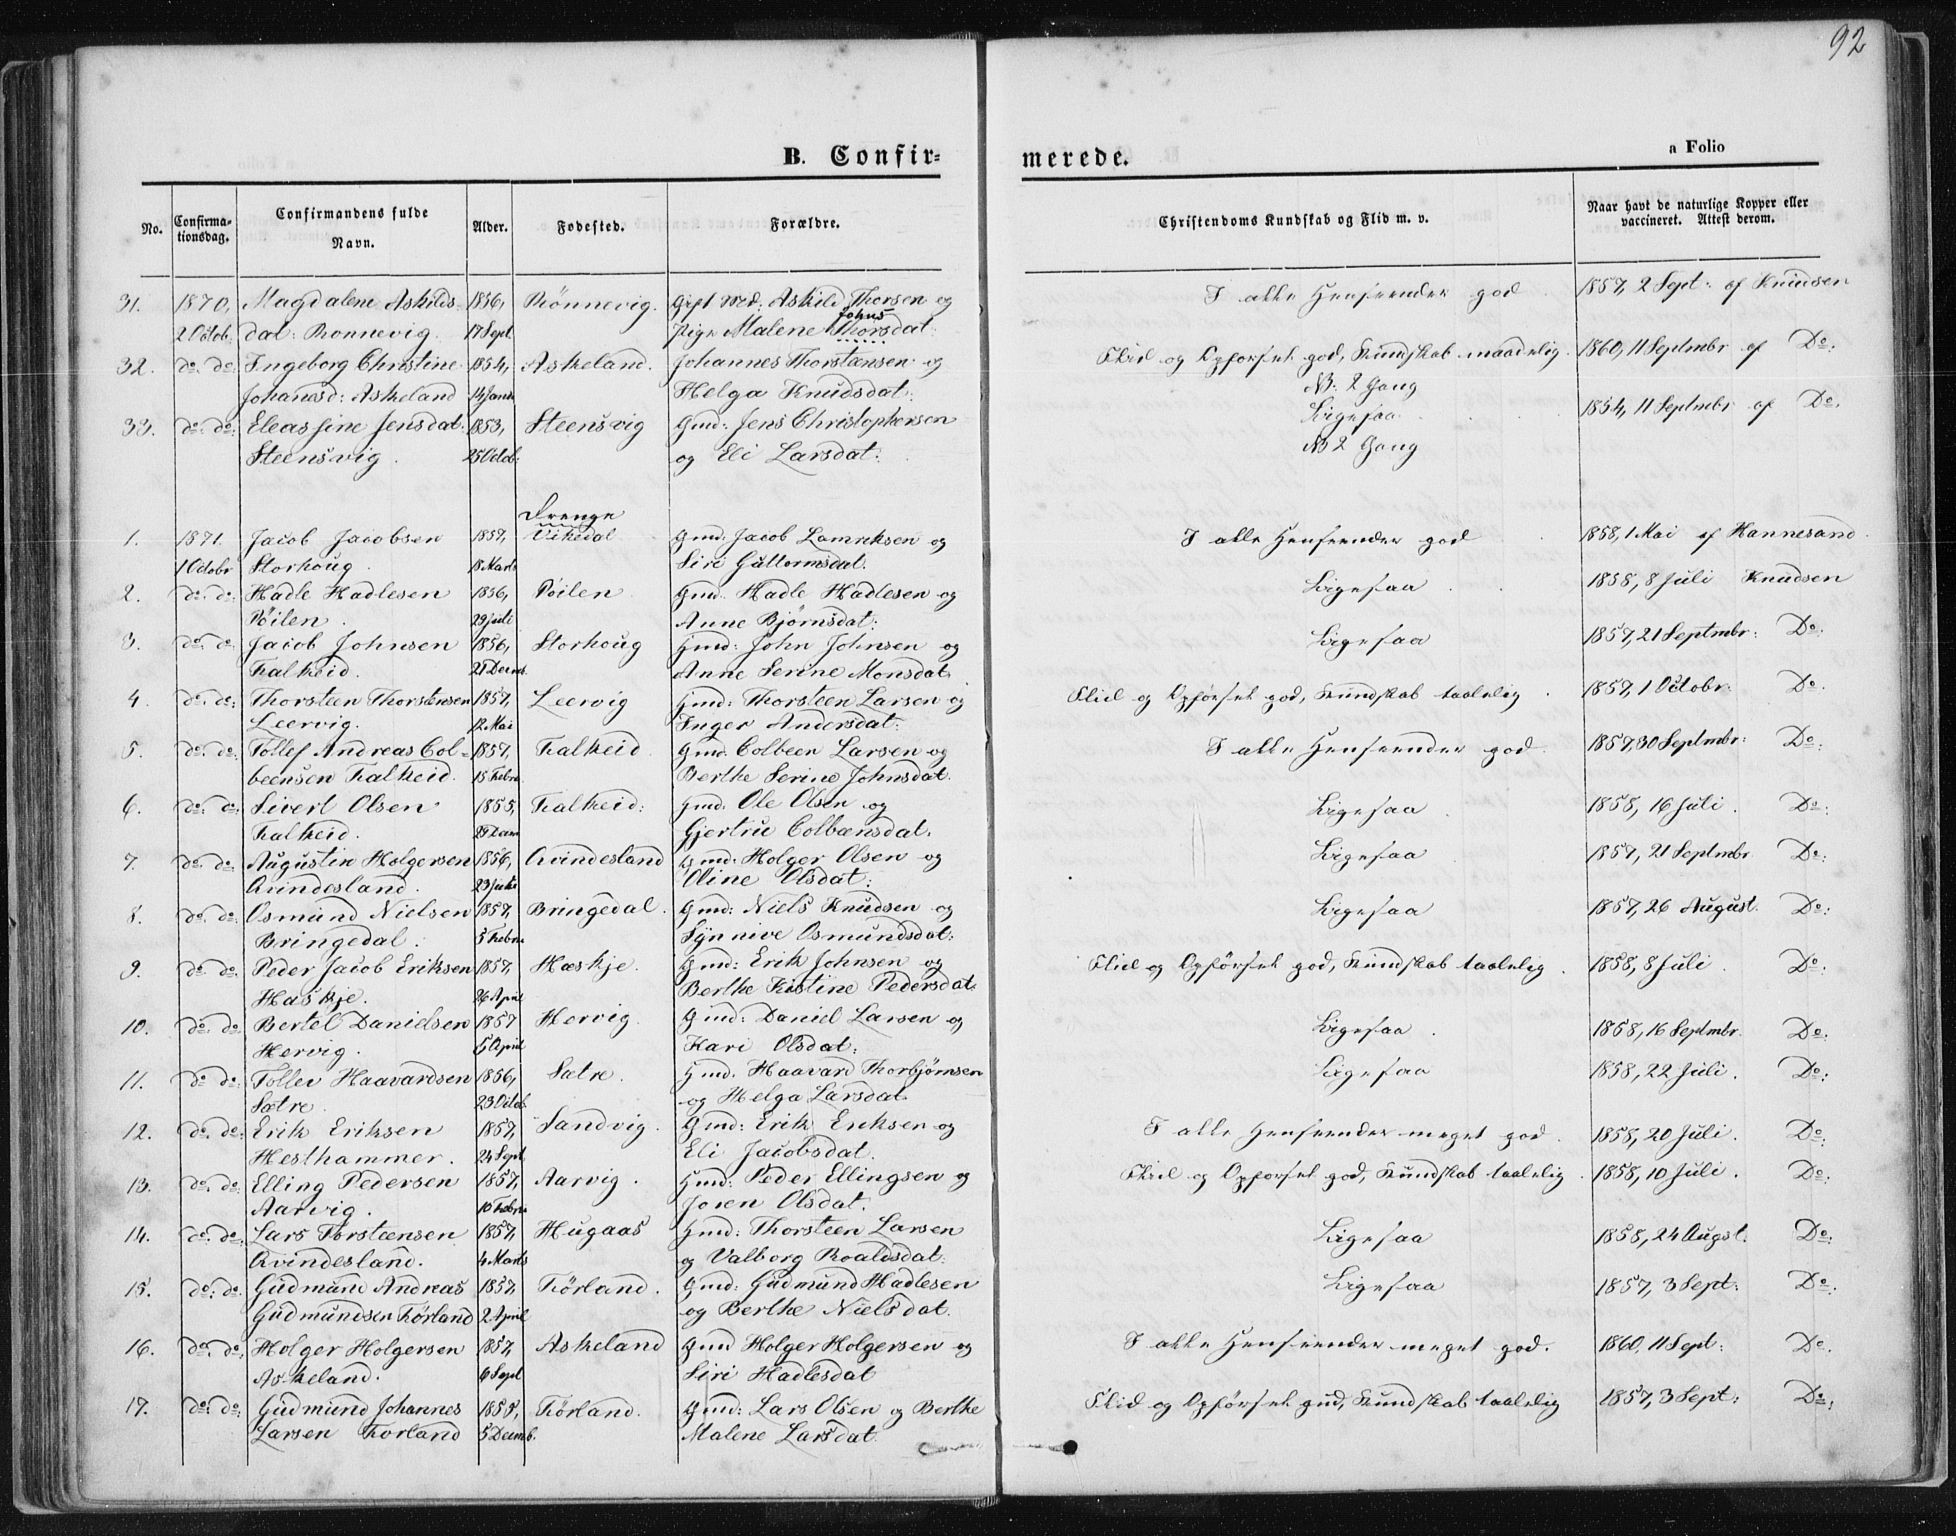 92
B. Confir-
merede.
a Folio
No.
Confirma-
tionsdag.
Confirmandens fulde
Navn.
Alder.
Fødested.
Forældre.
Christendoms Kundskab og Flid m. v.
Naar havt de naturlige Kopper eller
vaccineret. Attest derom.
31. 1870, Magdalene Askilds- 1856, Rönnevig. Gift Md: Askild Thorsen og I alle Henseender god. 1857, 2 Sept: af Knudsen
Johns
2 Octob dat: Ronnevig. 17 Sept Pige Malene Thorsdat:
32. do: do: Ingeborg Christine 1854, Askeland. Johannes Thorstensen og Flid og Opførsel god, Kundskab maadelig. 1860, 11 Septmbr af Do:
Johanesd: Askeland 14 Janu Helga Knudsdat: NB: 2 Gang
33. do: do: Eleasfine Jensdat: 1853, Steensvig Gmd: Jens Christophersen Ligesaa 1854, 11 Septmbr af Do:
Steensvig. 25 Octob: og Eli Larsdat: NB 2 Gang
Drenge
1. 1871. Jacob Jacobsen 1857, Vikedal Gmd: Jacob Lamriksen og I alle Henseender god 1858, 1 Mai af Hannesand.
1 Octobr Storhoug. 18 Marts Siri Guttormsdat.
2. do: do: Hadle Hadlesen 1856, Röilen Gmd. Hadle Hadlesen og Ligesaa 1858, 8 Juli Knudsen
Röilen. 29 Juli Anne Bjørnsdat:
3. do: do: Jacob Johnsen 1856, Storhoug Gmd: John Johnsen og Ligesaa 1857, 21 Septmbr: Do:
Falkeid. 21 Decmb. Anne Serine Monsdat.
4. do: do: Thorsteen Thorstensen 1857, Leervig Gmd: Thorsteen Larsen og Flid og Opførsel god, Kundskab taalelig. 1857, 1 Octobr: Do.
Leervig. 12 Mai Inger Andersdat:
5. do: do: Tollef Andreas Col- 1857, Falkeid. Gmd. Colbeen Larsen og I alle Henseender god. 1857, 30 Septmbr: Do:
beensen Falkeid. 15 Febru Berthe Serine Johnsdat.
6. do: do: Sivert Olsen 1855, Falkeid: Gmd: Ole Olsen og Ligesaa 1858, 16 Juli. Do:
Falkeid. Gjertru Colbænsdat.
7. do: do: Augustin Holgersen 1856, Qvindesland Gmd: Holger Olsen og Ligesaa 1857, 21 Septmbr. Do:
Qvindesland. Oline Olsdat:
8. do: do: Osmund Nielsen 1857, Bringedal. Gmd: Niels Knudsen og Ligesaa 1857, 26 August. Do:
Bringedal. 5 Febru Synnive Osmundsdat:
9. do: do: Peder Jacob Eriksen 1857, Hæskje. Gmd: Erik Johnsen og Flid og Opførsel god, Kundskab taalelig. 1858, 8 Juli. Do:
Haskje. 26 April Berthe Kistine Pedersdat.
10. do: do: Bertel Danielsen 1857 Hervig. Gmd: Daniel Larsen og Ligesaa. 1858, 16 Septmbr. Do:
Hervig. 5 April Kari Olsdat:
11. do: do: Tollev Haavardsen 1856, Sætre. Gmd. Haavard Thorbjørnsen Ligesaa 1858, 22 Juli. Do:
Sætre. 23 Octob. og Helga Larsdat.
12. do: do: Erik Eriksen 1857, Sandvig. Gmd: Erik Eriksen og I alle Henseender meget god. 1858, 20 Juli. Do:
Hesthammer. 24 Sept Eli Jacobsdat.
13. do: do: Elling Pedersen 1857, Aarvig. Gmd: Peder Ellingsen og Flid og Opførsel god, Kundskab taalelig. 1858, 10 Juli. Do:
Aarvig. 10 Febru Joren Olsdat.
14. do: do: Lars Torsteensen 1857, Hugaas Gmd: Thorsteen Larsen Ligesaa 1858, 24 Augst. Do:
Qvindesland. 4 Marts og Valborg Roaldsdat:
15. do: do: Gudmund Andreas 1857, Førland. Gmd: Gudmund Hadlesen Ligesaa 1857, 3 Sept: Do:
Gudmundsen Førland 2 April og Berthe Nielsdat.
16. do: do: Holger Holgersen 1857, Askeland Gmd Holger Holgersen og I alle Henseender meget god. 1860, 11 Sept: Do.
Askeland. 6 Sept Siri Hadlesdat
17. do: do: Gudmund Johannes 1855, Førland. Gmd: Lars Olsen og Berthe Flid og Opførsel god, Kundskab taalelig 1857, 3 Sept: Do:
Larsen Førland 5 Decmb. Malene Larsdat.